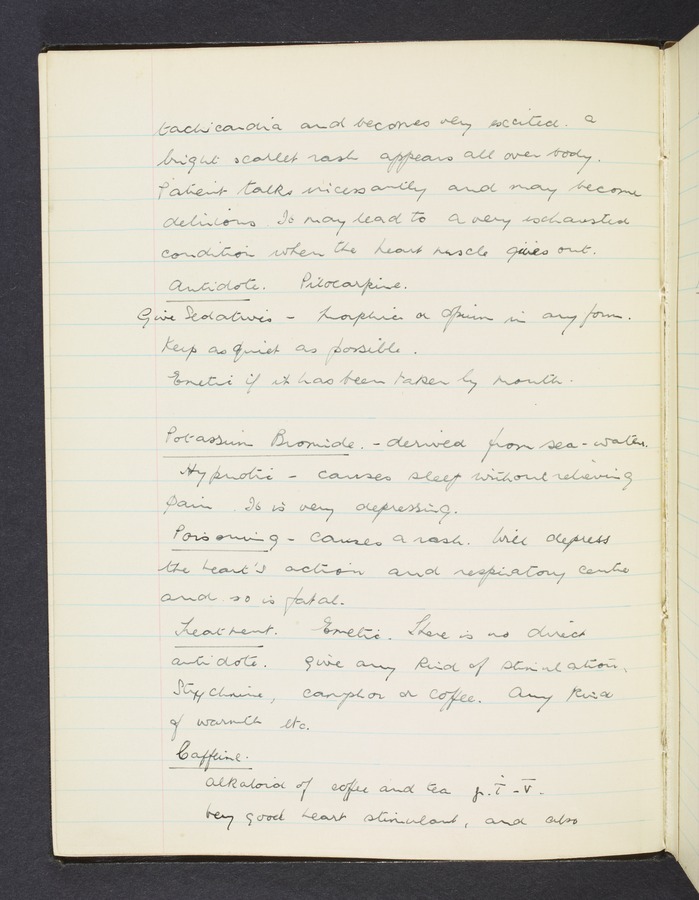 tachicardia and becomes very excited. a
bright scarlet rash appears all over body.
Patient talks incessantly and may become
delirious. It may lead to a very exhausted
condition when the heart muscle gives out.
Antidote. Pilocarpine.
Give Sedatives - Morphia or Opium in any form.
Keep as quiet as possible.
Emetic if it has been taken by mouth.
Potassium Bromide. - derived from sea-water.
Hypnotic - causes sleep without relieving
pain. It is very depressing.
Poisoning - causes a rash. Will depress
the heart's action and respiratory centre
and so is fatal.
Treatment. Emetic. There is no direct
antidote. Give any kind of stimulation.
Strychnine, camphor or coffee. Any kind
of warmth etc.
Caffeine.
alkaloid of coffee and tea gr. i - v.
Very good heart stimulant, and also